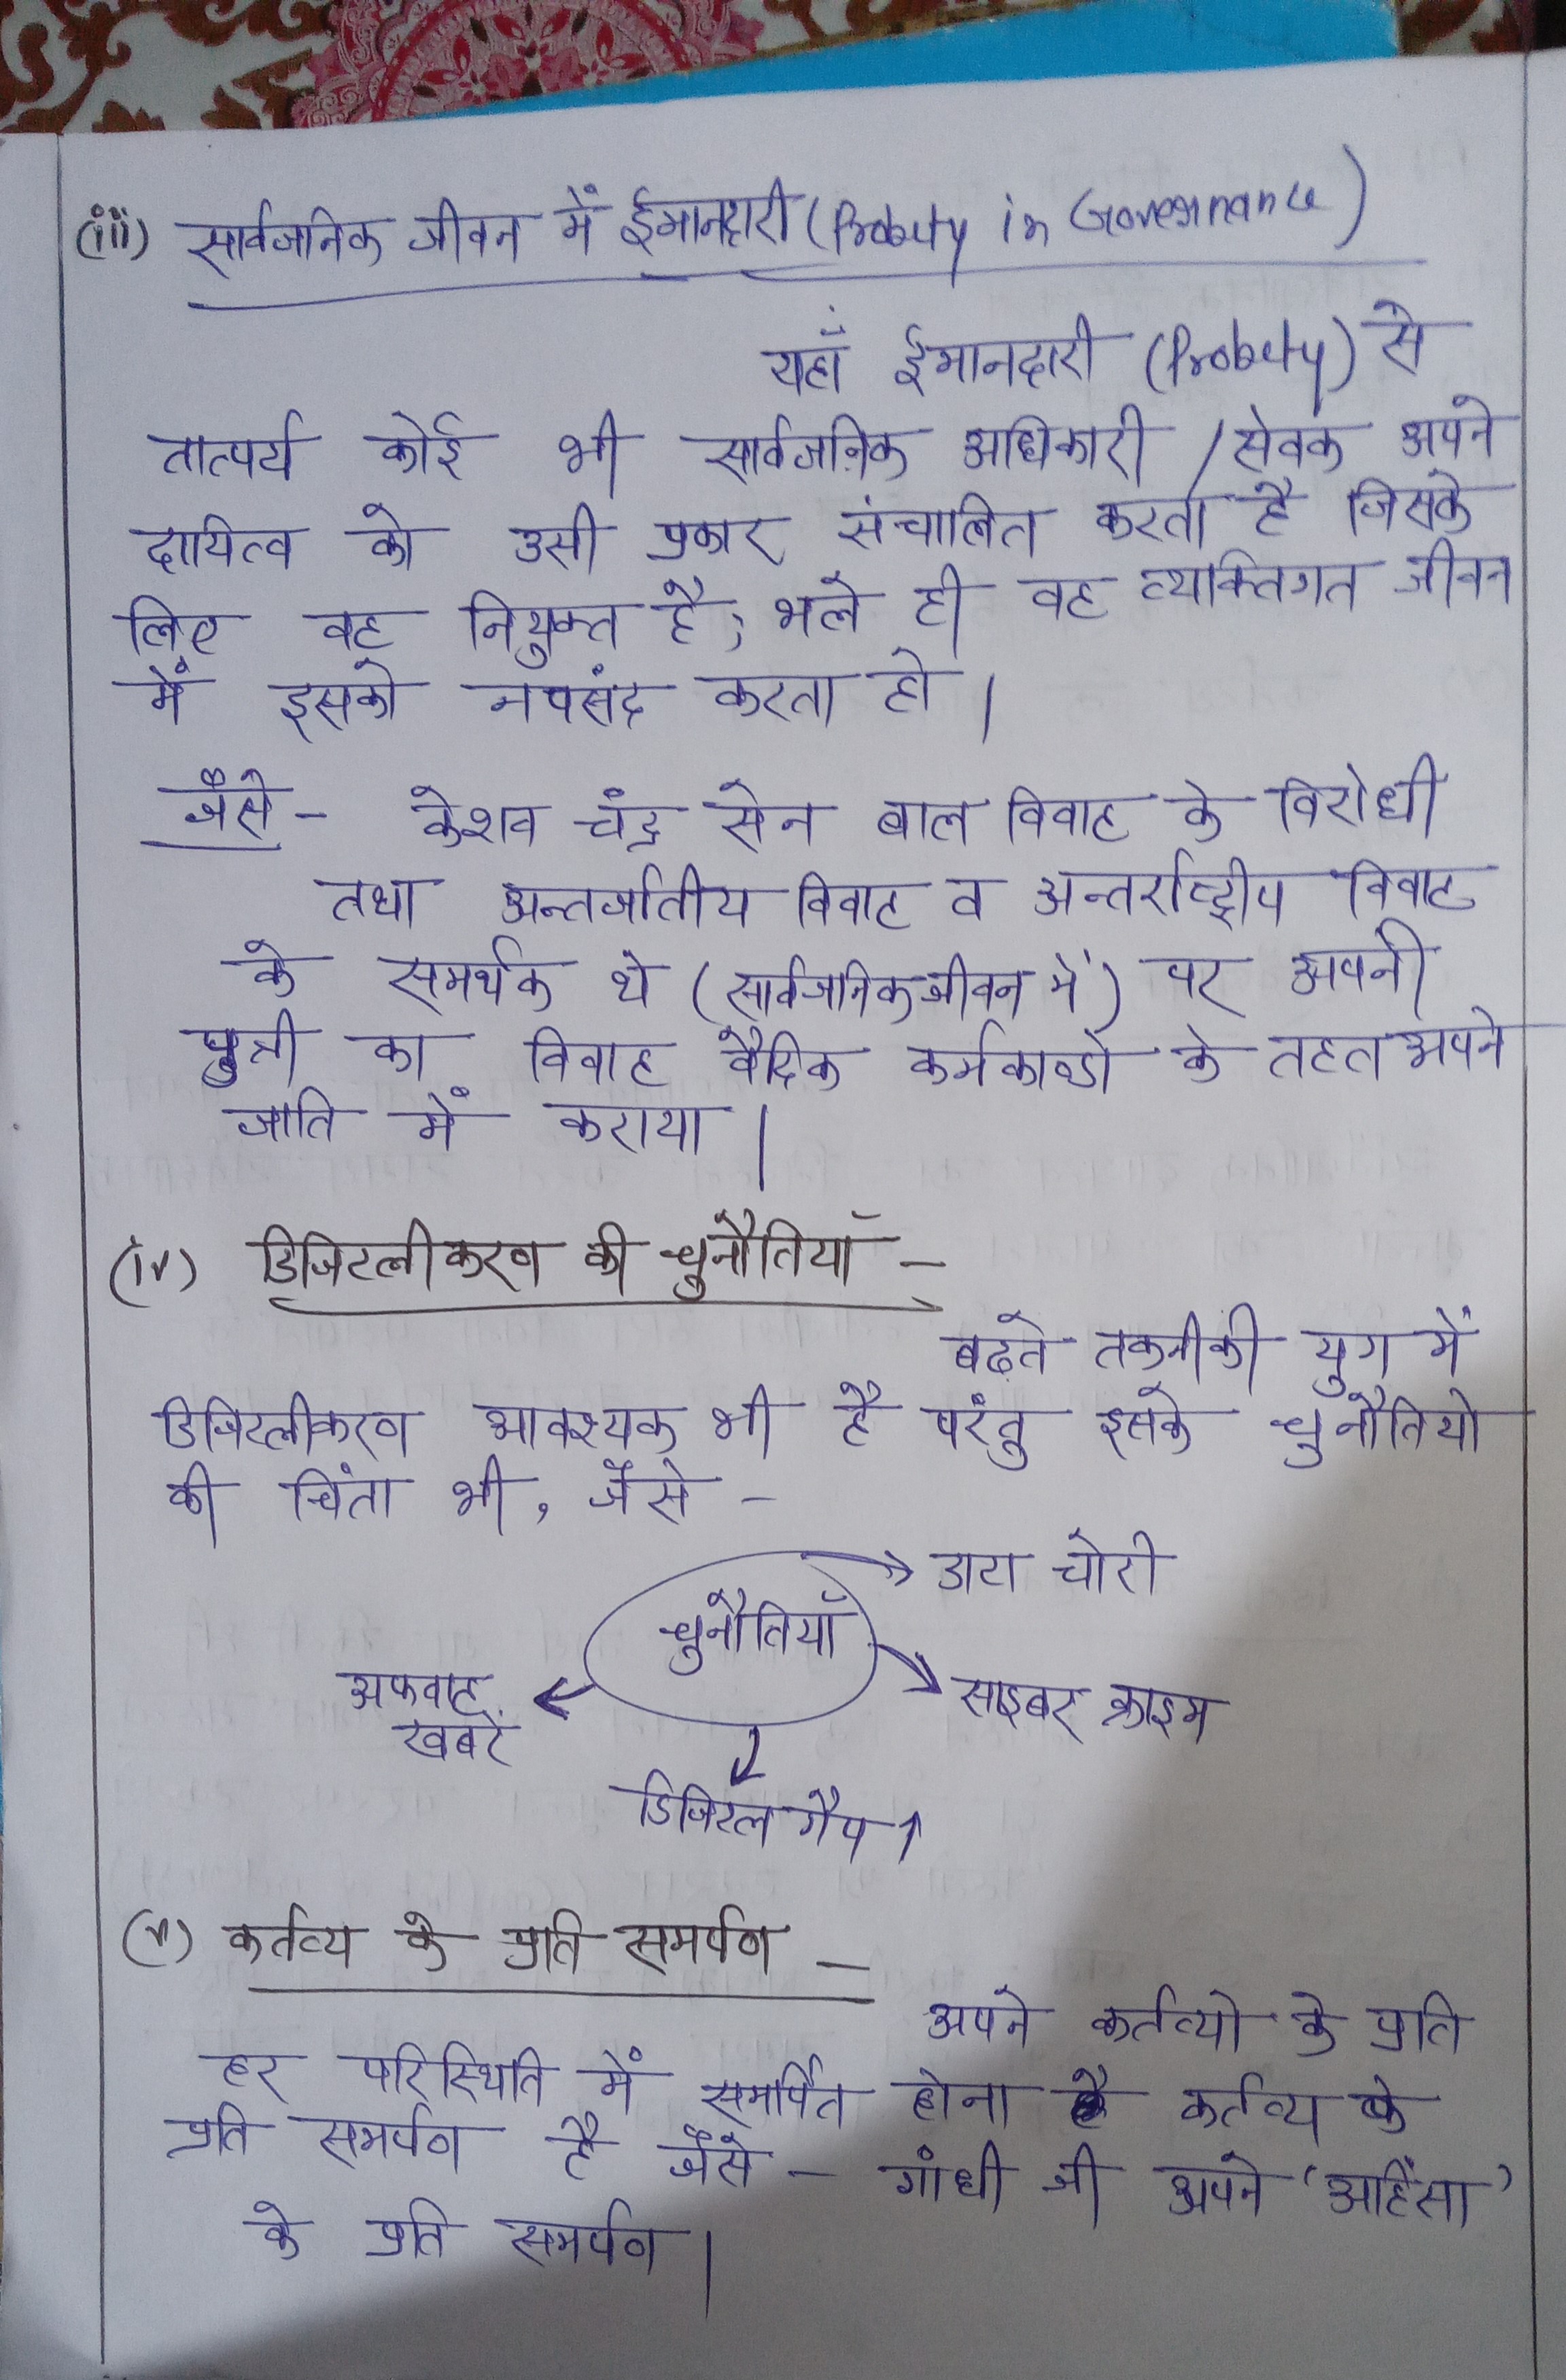 (iii) सार्वजनिक जीवन में ईमानदारी (Probity in Governance)
यहाँ ईमानदारी (Probity) से
तात्पर्य कोई भी सार्वजनिक अधिकारी / सेवक अपने
दायित्व को उसी प्रकार संचालित करता है जिसके
लिए वह नियुक्त है, भले ही वह व्यक्तिगत जीवन
में इसको नपसंद करता हो।
जैसे - केशव चंद्र सेन बाल विवाह के विरोधी
तथा अन्तर्जातीय विवाह व अन्तर्राष्ट्रीय विवाह
के समर्थक थे (सार्वजनिक जीवन में) पर अपनी
पुत्री का विवाह वैदिक कर्मकाण्डो के तहत अपने
जाति में कराया।
(iv) डिजिटलीकरण की चुनौतियाँ -
बढ़ते तकनीकी युग में
डिजिटलीकरण आवश्यक भी है परंतु इसके चुनौतियो
की चिंता भी, जैसे -
डाटा चोरी
चुनौतियाँ
अफवाह
खबरें
साइबर क्राइम
डिजिटल गैप ↑
(v) कर्तव्य के प्रति समर्पण -
अपने कर्तव्यो के प्रति
हर परिस्थिति में समर्पित होना है कर्तव्य के
प्रति समर्पण है जैसे - गांधी जी अपने 'अहिंसा'
के प्रति समर्पण।